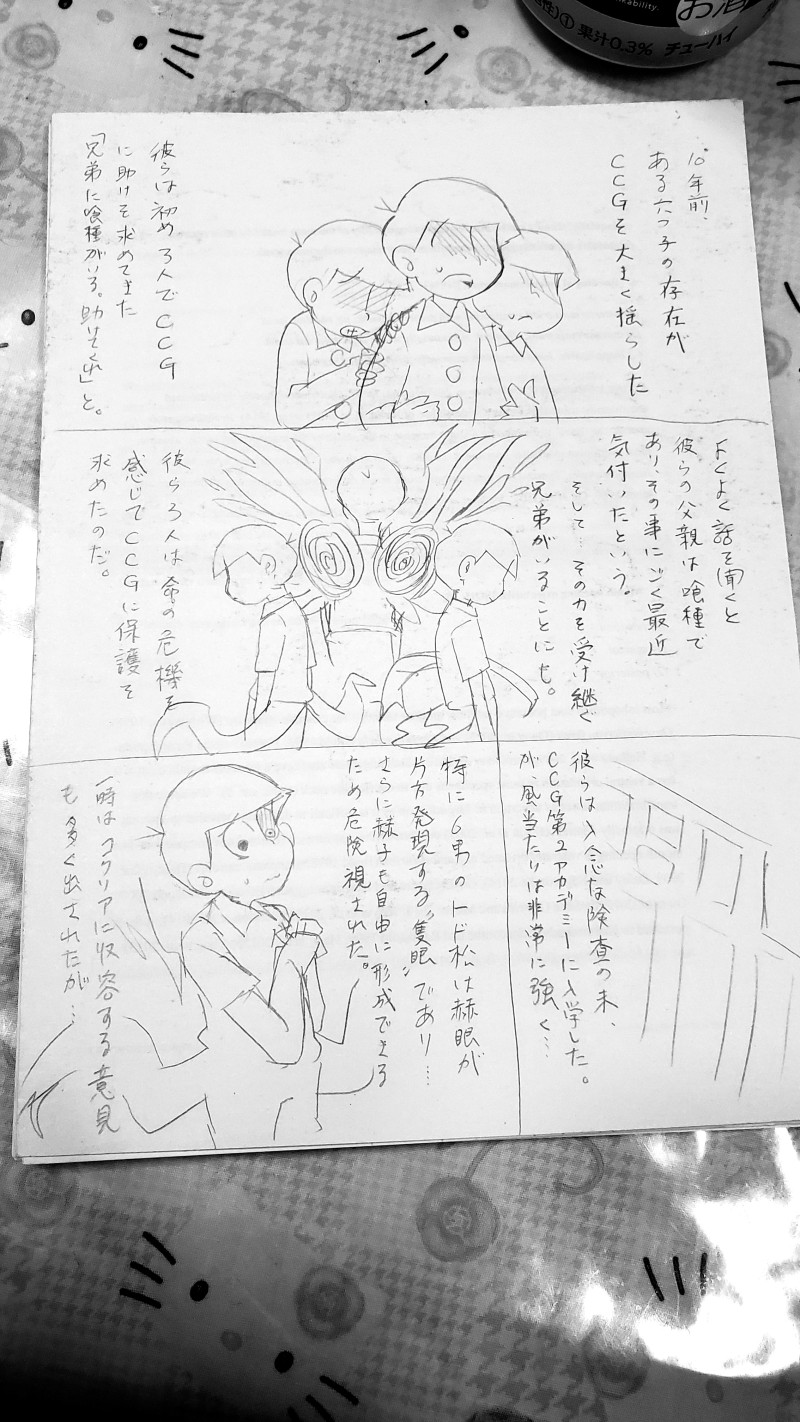 10年前、
ある六つ子の存在が
CCGを大きく揺らした
彼らは初め3人でCCG
に助けを求めてきた
「兄弟に喰種がいる。助けてくれ」と。
よくよく話を聞くと
彼らの父親は喰種で
あり、その事にごく最近
気付いたという。
そして…その力を受け継ぐ
兄弟がいることにも。
彼ら3人は命の危機を
感じてCCGに保護を
求めたのだ。
彼らは入念な険査の末、
CCG第2アカデミーに入学した。
が、風当たりは非常に強く…
特に6男のトド松は赫眼が
片方発現する"隻眼"であり…
さらに赫子も自由に形成できる
ため危険視された。
一時はコクリアに収容する意見
も多く出されたが…
お酒
果汁0.3% チューハイ